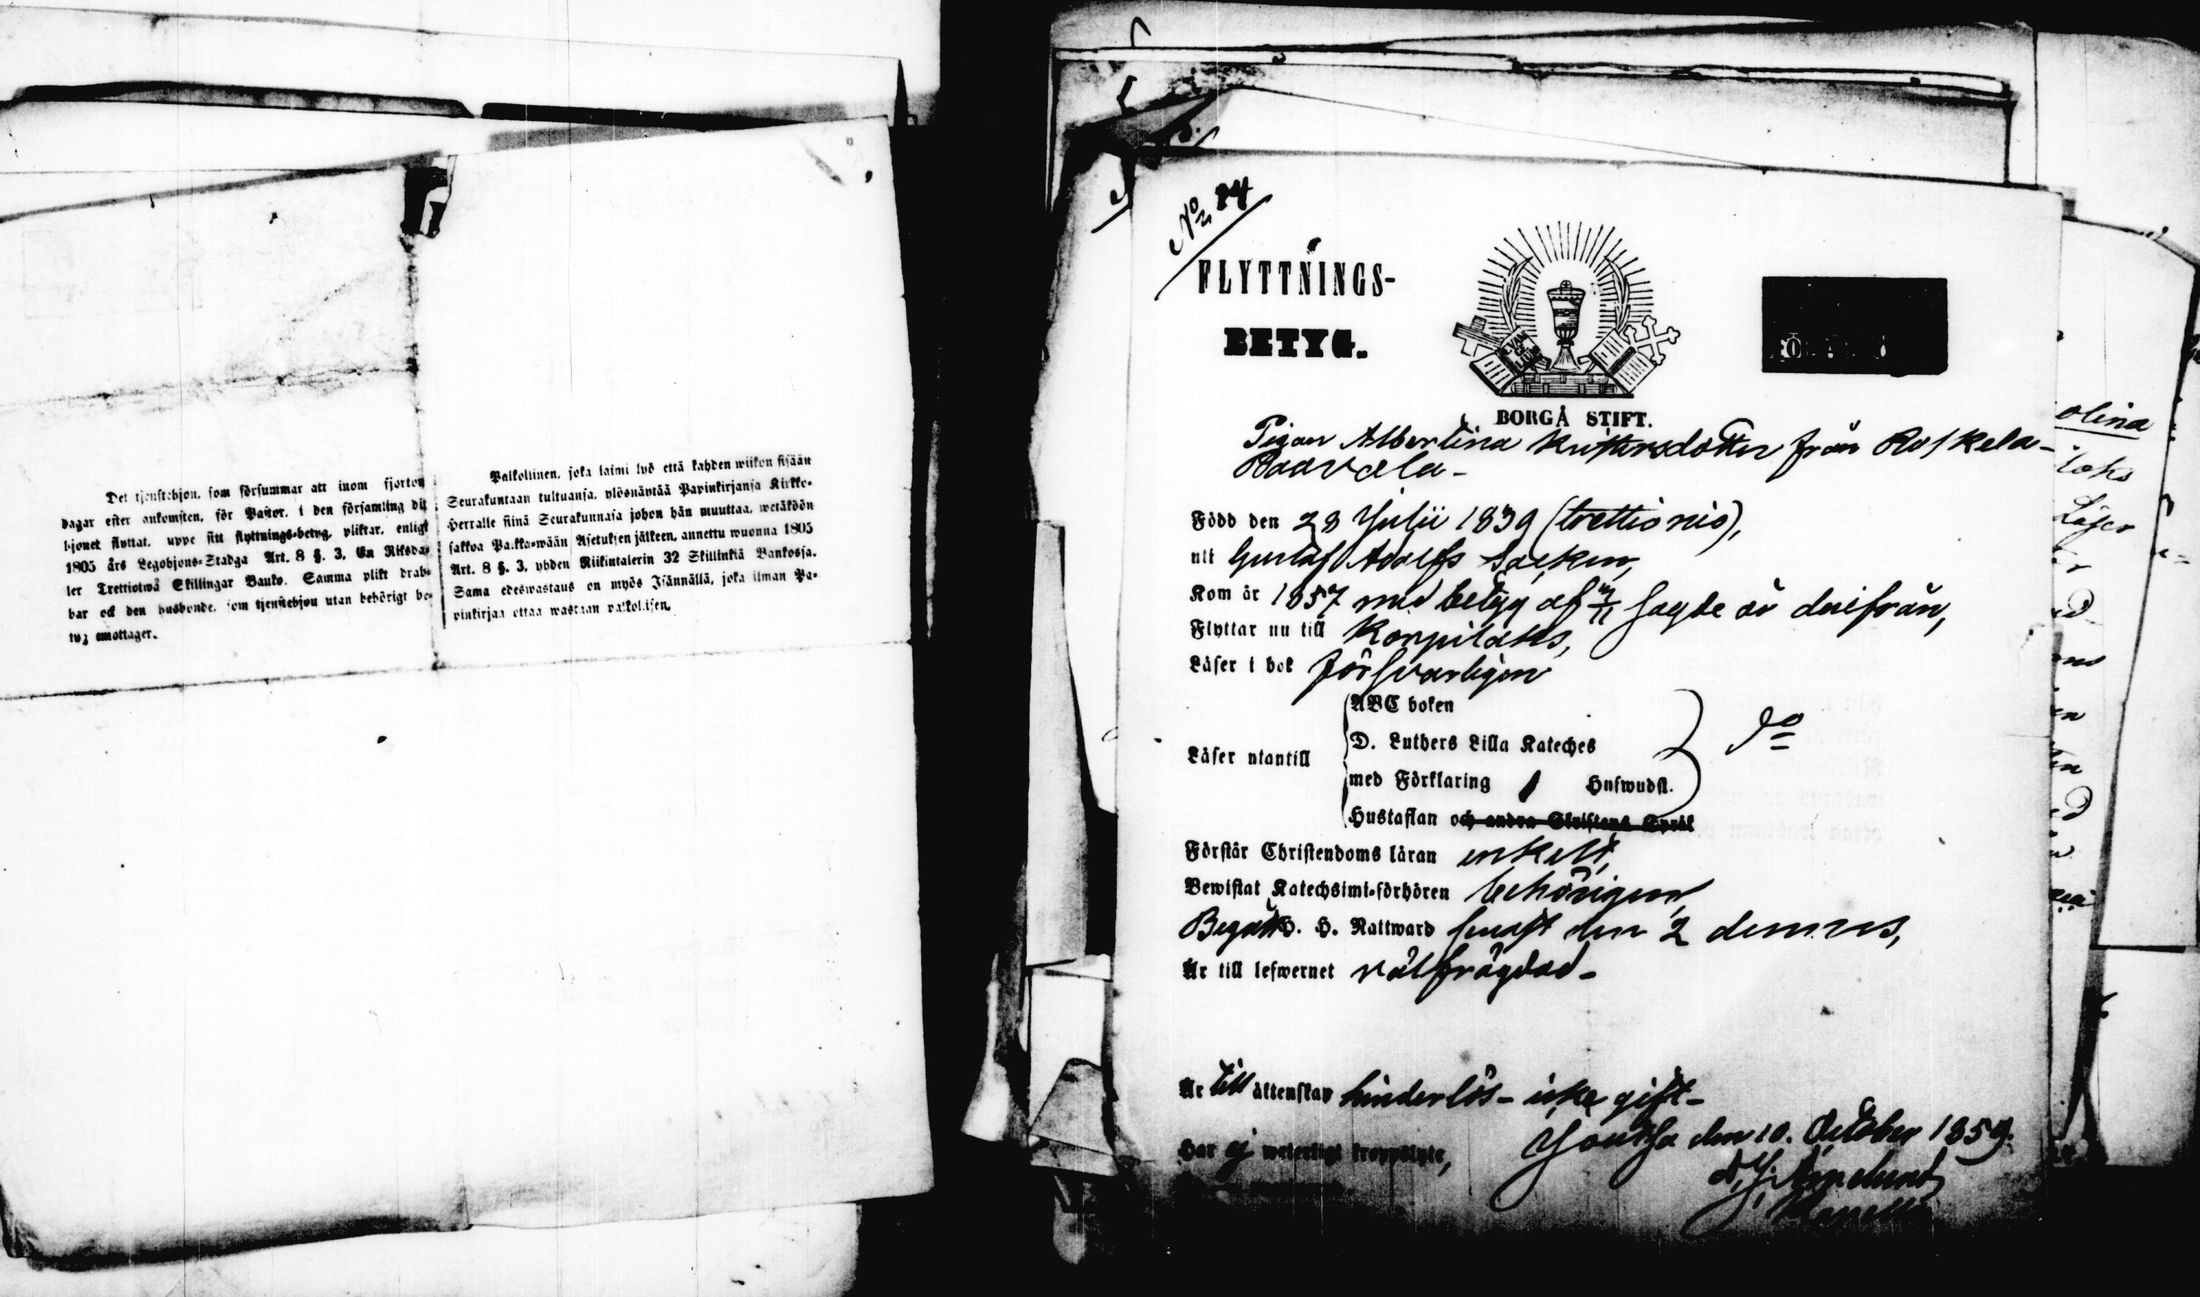 Det tjenstehjon, som försummar att inom fjorton
dagar efter ankomsten, för Pastor, i den församling dit
hjonet flyttat, uppe sitt flyttnings-betyg, pliktar, enligt
1805 års Legohjons-Stadga Art. 8 §. 3, En Riksda-
ler Trettiotwå Skillingar Banko. Samma plikt drab-
bar ock den husbonde, som tjenstehjon utan behörigt be-
tyg emottager.
Palkollinen, joka laimi lyö että kahden wiikon sisään
Seurakuntaan tultuansa, ylösnäytää Papinkirjansa Kirkko-
Herralle siinä Seurakunnasa johon hän muuttaa, wetäköön
sakkoa Palkka-wään Asetuksen jälkeen, annettu wuonna 1805
Art. 8 §. 3, yhden Riikintalerin 32 Skillinkiä Bankossa.
Sama edeswastaus on myös Isännällä, joka ilman Pa-
pinkirjaa ottaa wastaan palkollisen.
No 84
FLYTTNINGS-
BETYG.
BORGÅ STIFT.
Pigan Albertina från Roskela-
Född den 28 Julii 1839 (trettionio),
uti Gustaf Adolfs Socken,
Kom år 1857 med betyg af sagde år därifrån,
Flyttar nu till Korpilaks,
Läser i bok försvarligen
Läser utantill
ABC boken
D. Luthers Lilla Kateches
med Förklaring Huswudst.
Hustaflan och andra Skriftens Språk
do
Förstår Christendoms läran enkelt,
Bewistat Katechsimi-förhören behörigen,
Begått H. H. Nattward senast den 2 dennes,
Är till lefwernet välfrägdad-
Är till äktenskap hinderlös- icke gift-
Har ej weterligt kroppslyte,
Joutsa den 10. October 1859.
olina
Läser